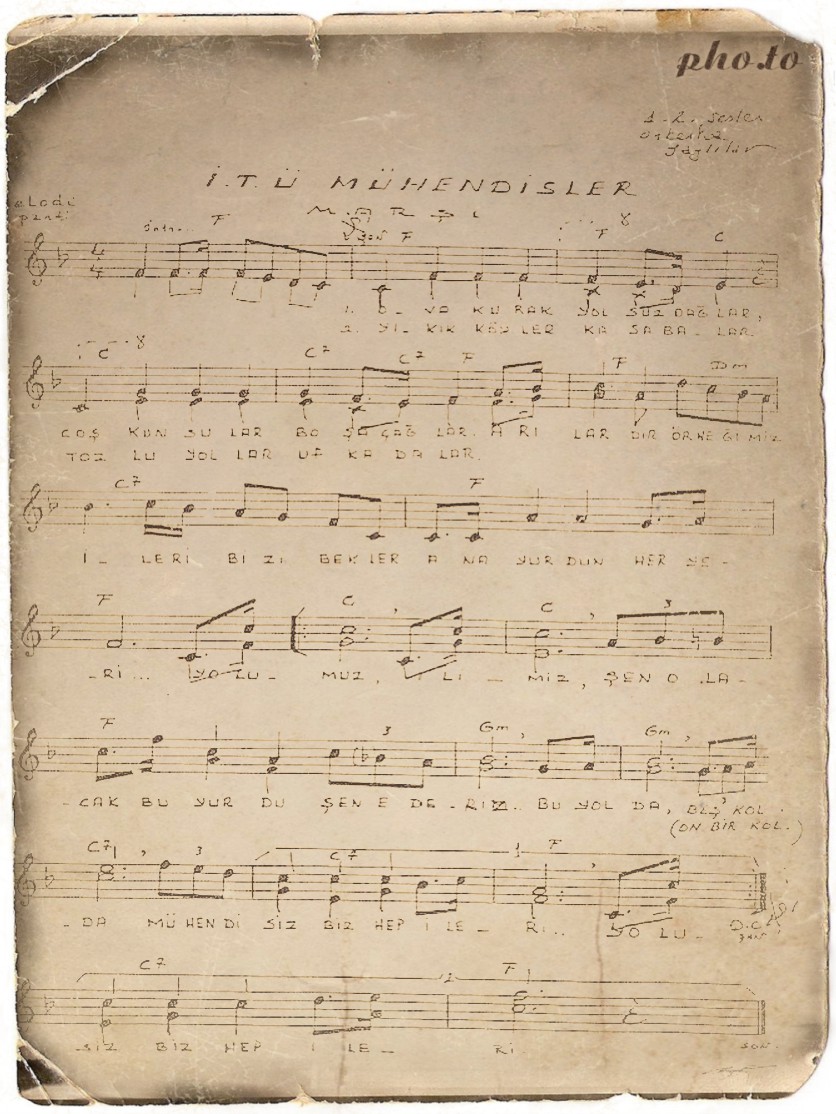 pho.to
1-2. Sesler
Orkestra
İ.T.Ü MÜHENDİSLER
MARŞI
Melodi
parti
F F F 8 C
1. O- VA KU RAK YOL SUZ DAĞ LAR,
2. YI- KIK KÖY LER KA SA BA- LAR
C 8 C7 C7 F F Dm
COŞ KUN SU LAR BO ŞA ÇAĞ LAR. A RI LAR DIR ÖRNE GI MIZ
TOZ LU YOL LAR UF KA DA LAR.
C7 F
İ- LERİ BI ZI BEKLER A NA YUR DUN HER YE-
F C C 3
-RI... YO LU- MUZ, I LI - MIZ, ŞEN O LA-
F 3 Gm Gm
-CAK BU YUR DU ŞEN E DE-RIZ.. BU YOL DA, BEŞ KOL
(ON BİR KOL.)
C7 3 C7 1 F
-DA MÜ HEN DI SIZ BIZ HEP I LE- RI.. YO LU- D.C
C7 2 F
SIZ BIZ HEP I LE- RI SON.